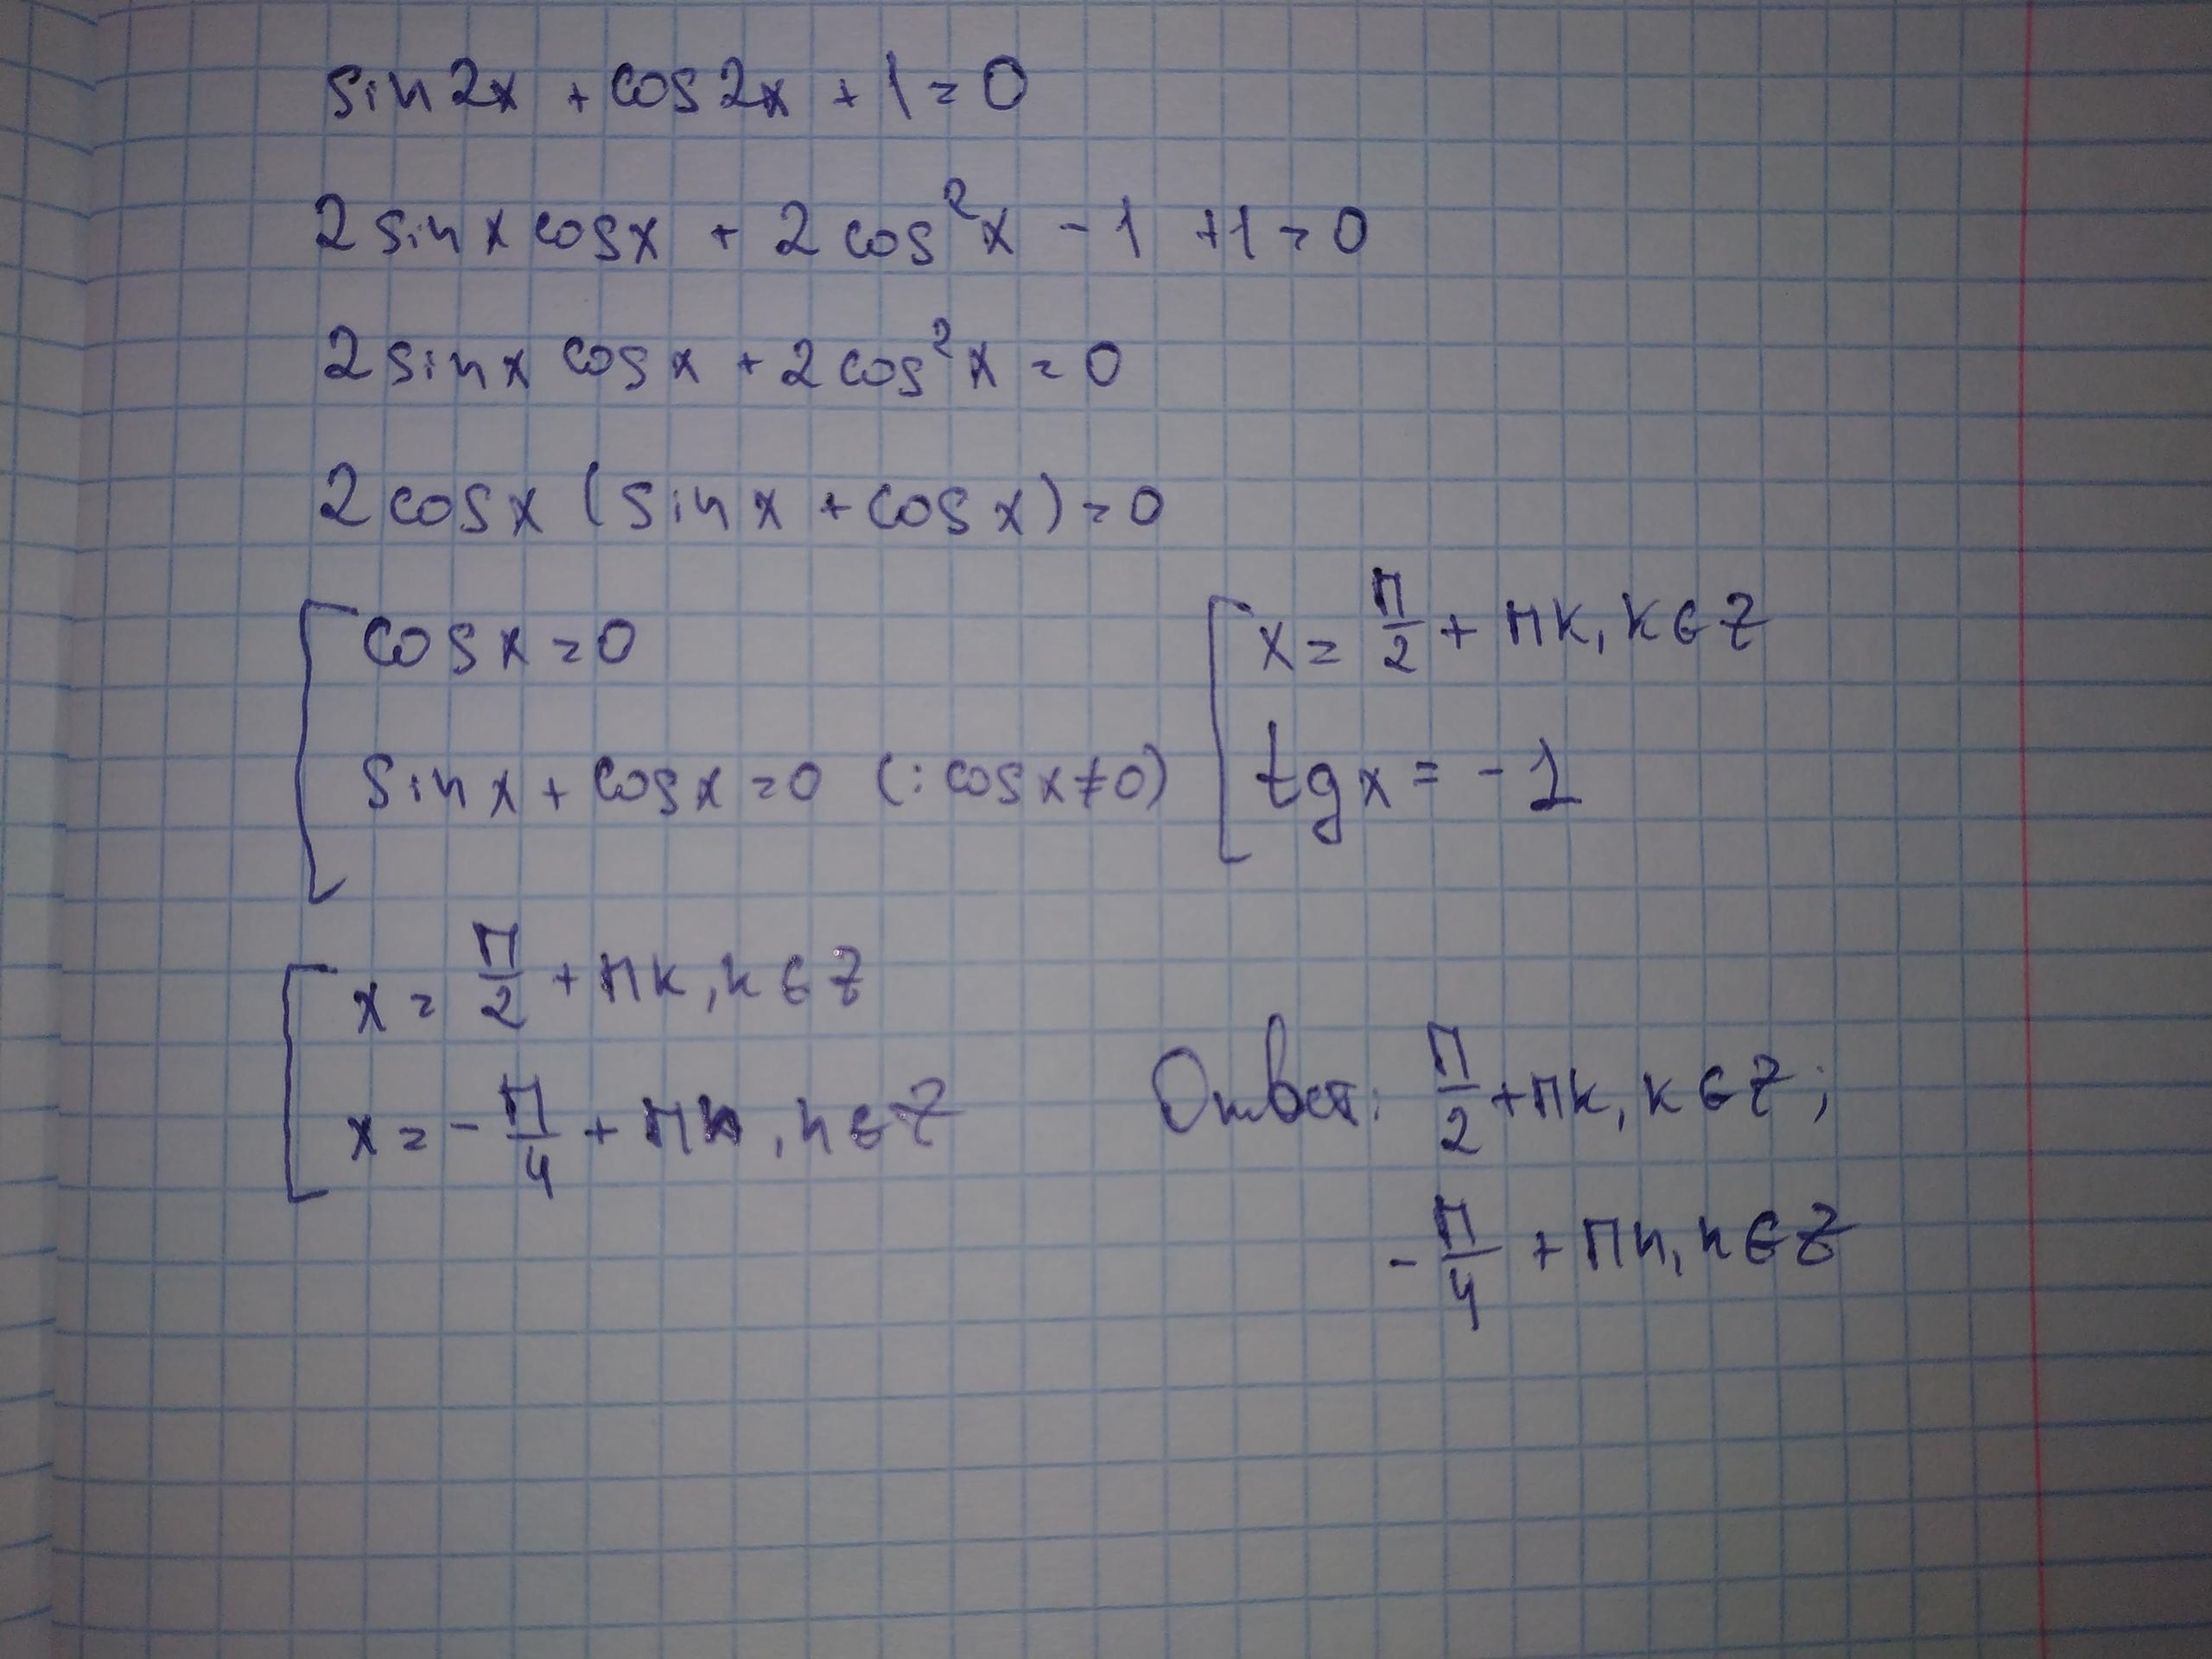 sin2x + cos2x + 1 = 0
2 sinx cosx + 2 cos²x - 1 + 1 = 0
2 sinx cosx + 2 cos²x = 0
2 cosx (sinx + cosx) = 0
[ cosx = 0
sinx + cosx = 0 (: cosx ≠ 0)
[ x = π/2 + πk, k ∈ Z
tgx = -1
[ x = π/2 + πk, k ∈ Z
x = - π/4 + πn, n ∈ Z
Ответ: π/2 + πk, k ∈ Z;
- π/4 + πn, n ∈ Z